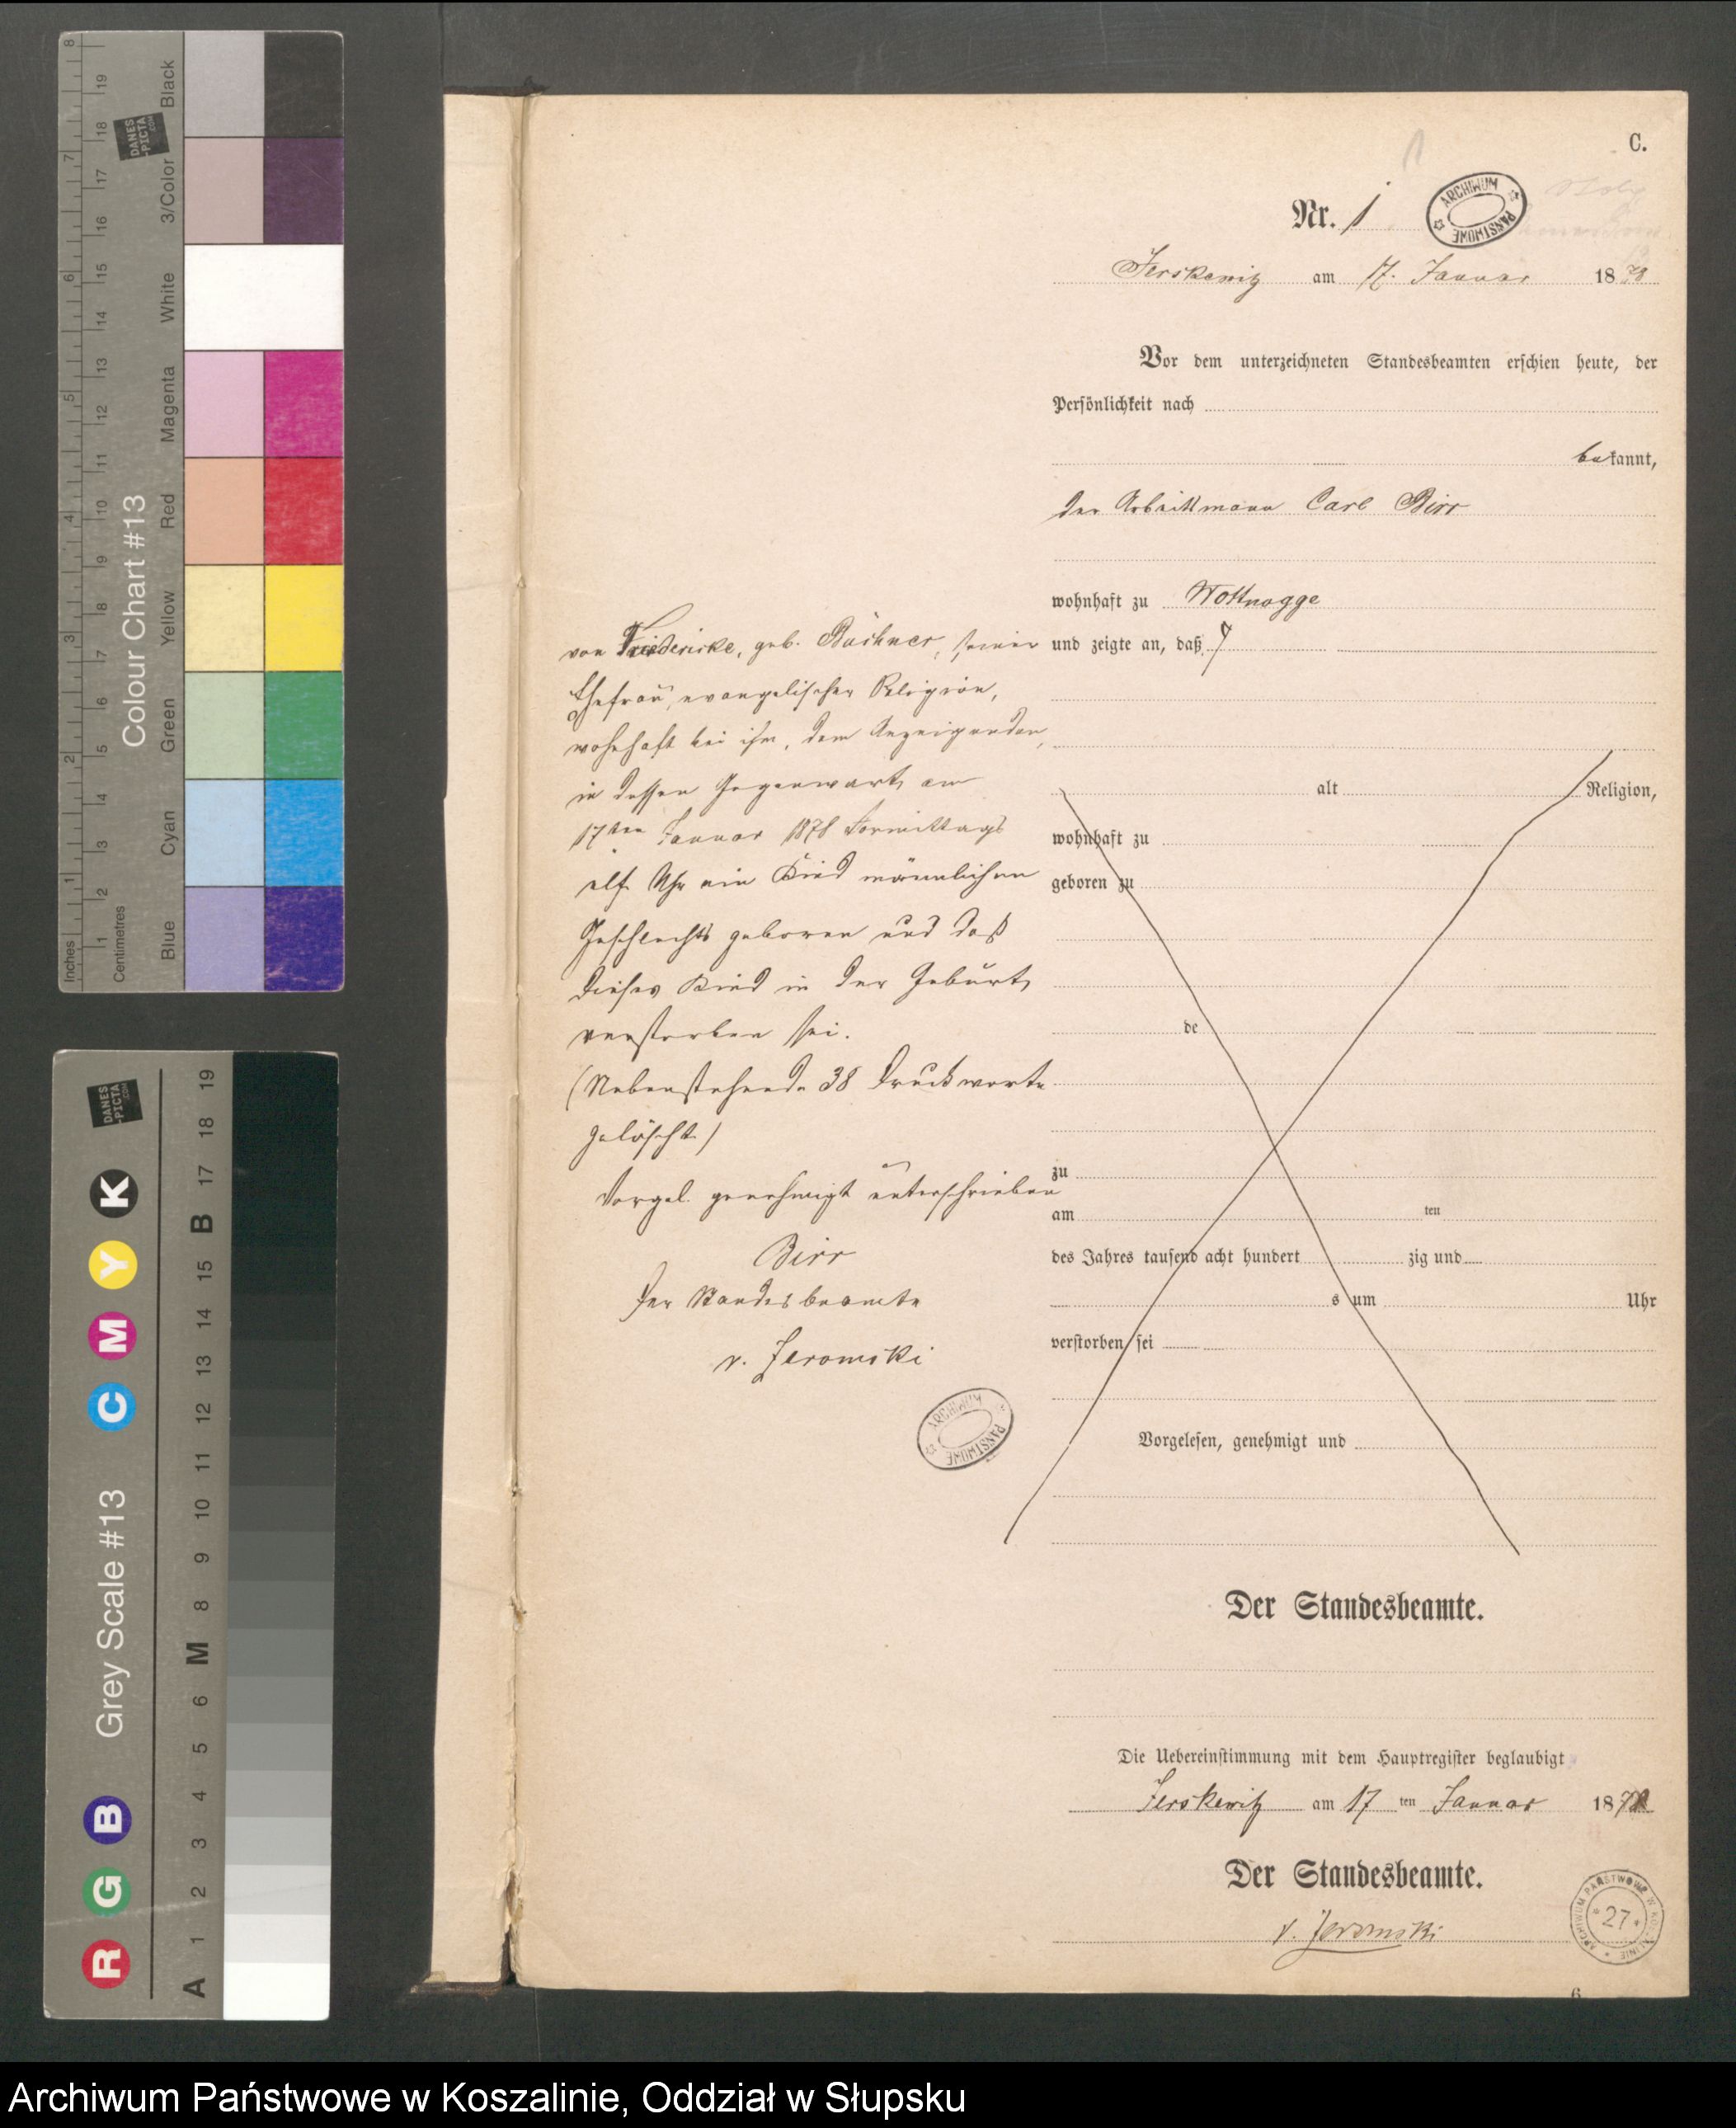 C.
1
Nr. 1
ARCHIWUM PAŃSTWOWE
Jerskewitz am 17. Januar 1878
Vor dem unterzeichneten Standesbeamten erschien heute, der
Persönlichkeit nach
bekannt,
der Arbeitsmann Carl Birr
wohnhaft zu Wottnogge
und zeigte an, daß
von Friedericke, geb. Büchner, seiner
Ehefrau, evangelischer Religion,
wohnhaft bei ihm, dem Anzeigenden,
in dessen Gegenwart, am
17ten Januar 1878 Vormittags
elf Uhr ein Kind männlichen
Geschlechts geboren und daß
dieses Kind in der Geburt,
verstorben sei.
(Nebenstehende 38 Druckworte
gelöscht)
Vorgel. genehmigt unterschrieben
Birr
Der Standesbeamte
v. Jeromski
ARCHIWUM PAŃSTWOWE
alt Religion,
wohnhaft zu
geboren zu
de
zu
am ten
des Jahres tausend acht hundert zig und
s um Uhr
verstorben sei
Vorgelesen, genehmigt und
Der Standesbeamte.
Die Uebereinstimmung mit dem Hauptregister beglaubigt
Jerskewitz am 17 ten Januar 1878
Der Standesbeamte.
v. Jeromski
ARCHIWUM PAŃSTWOWE W KOSZALINIE
27
6
Colour Chart #13
Black
3/Color
White
Magenta
Red
Yellow
Green
Cyan
Blue
Inches
1 2 3 4 5 6 7 8
Centimetres
1 2 3 4 5 6 7 8 9 10 11 12 13 14 15 16 17 18 19
DANES
-PICTA
.COM
Grey Scale #13
R G B C M Y K
A 1 2 3 4 5 6 M 8 9 10 11 12 13 14 15 B 17 18 19
DANES
-PICTA
.COM
Archiwum Państwowe w Koszalinie, Oddział w Słupsku